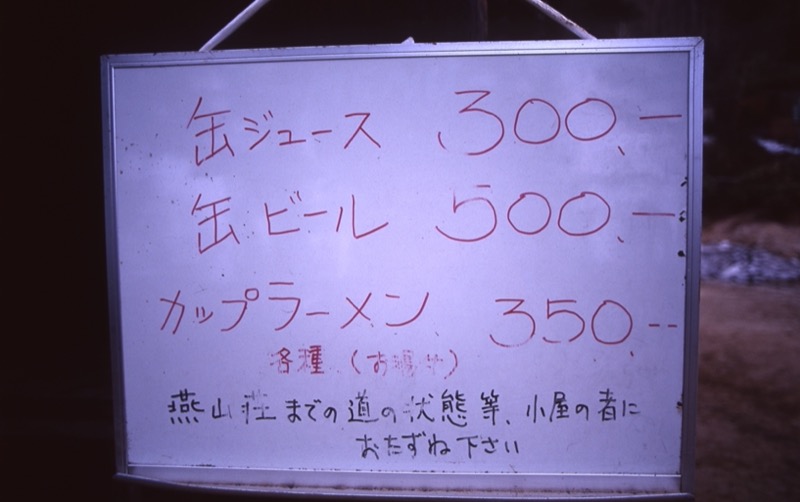 缶ジュース 300.-
缶ビール 500.-
カップラーメン 350.--
各種 (お湯付)
燕山荘までの道の状態等、小屋の者に
おたずね下さい